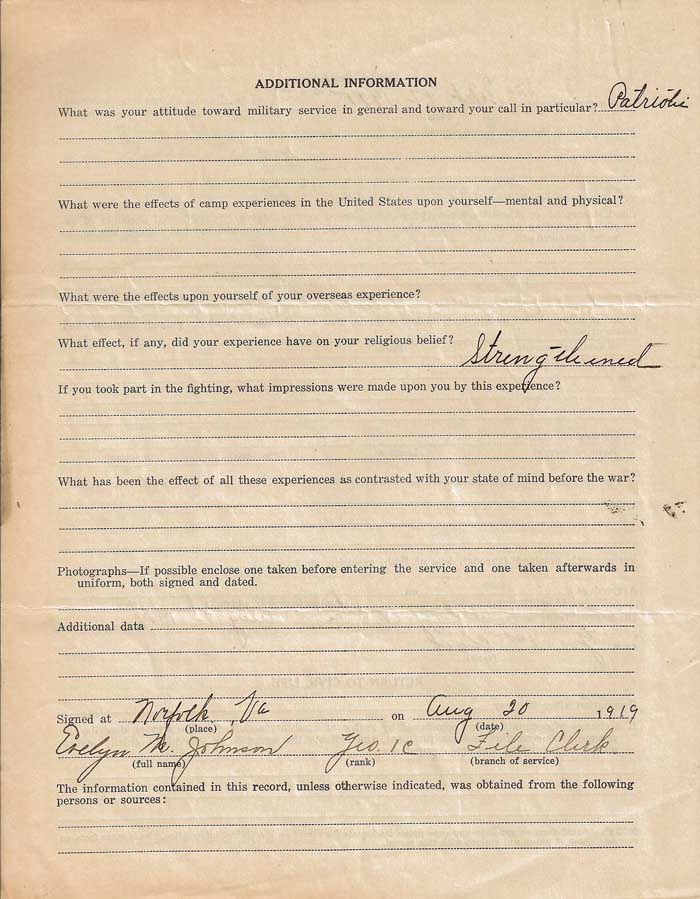 ADDITIONAL INFORMATION
What was your attitude toward military service in general and toward your call in particular? Patriotic
What were the effects of camp experiences in the United States upon yourself—mental and physical?
What were the effects upon yourself of your overseas experience?
What effect, if any, did your experience have on your religious belief? Strengthened
If you took part in the fighting, what impressions were made upon you by this experience?
What has been the effect of all these experiences as contrasted with your state of mind before the war?
Photographs—If possible enclose one taken before entering the service and one taken afterwards in
uniform, both signed and dated.
Additional data
Signed at Norfolk, Va on Aug 20 1919
(place) (date)
Evelyn M. Johnson Yeo. 1c File Clerk
(full name) (rank) (branch of service)
The information contained in this record, unless otherwise indicated, was obtained from the following
persons or sources: